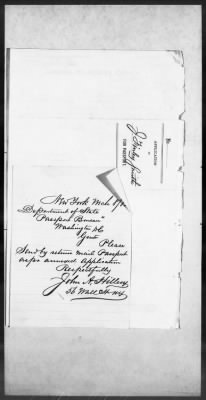 No.
APPLICATION
FOR PASSPORT
J. Finley Smith
New York Mch
Department of State
Passport Bureau
Washington DC
Gents
Please
Send by return mail Passport
as per annexed application
Respectfully
John A. Hillery
56 Wall St. N.Y.